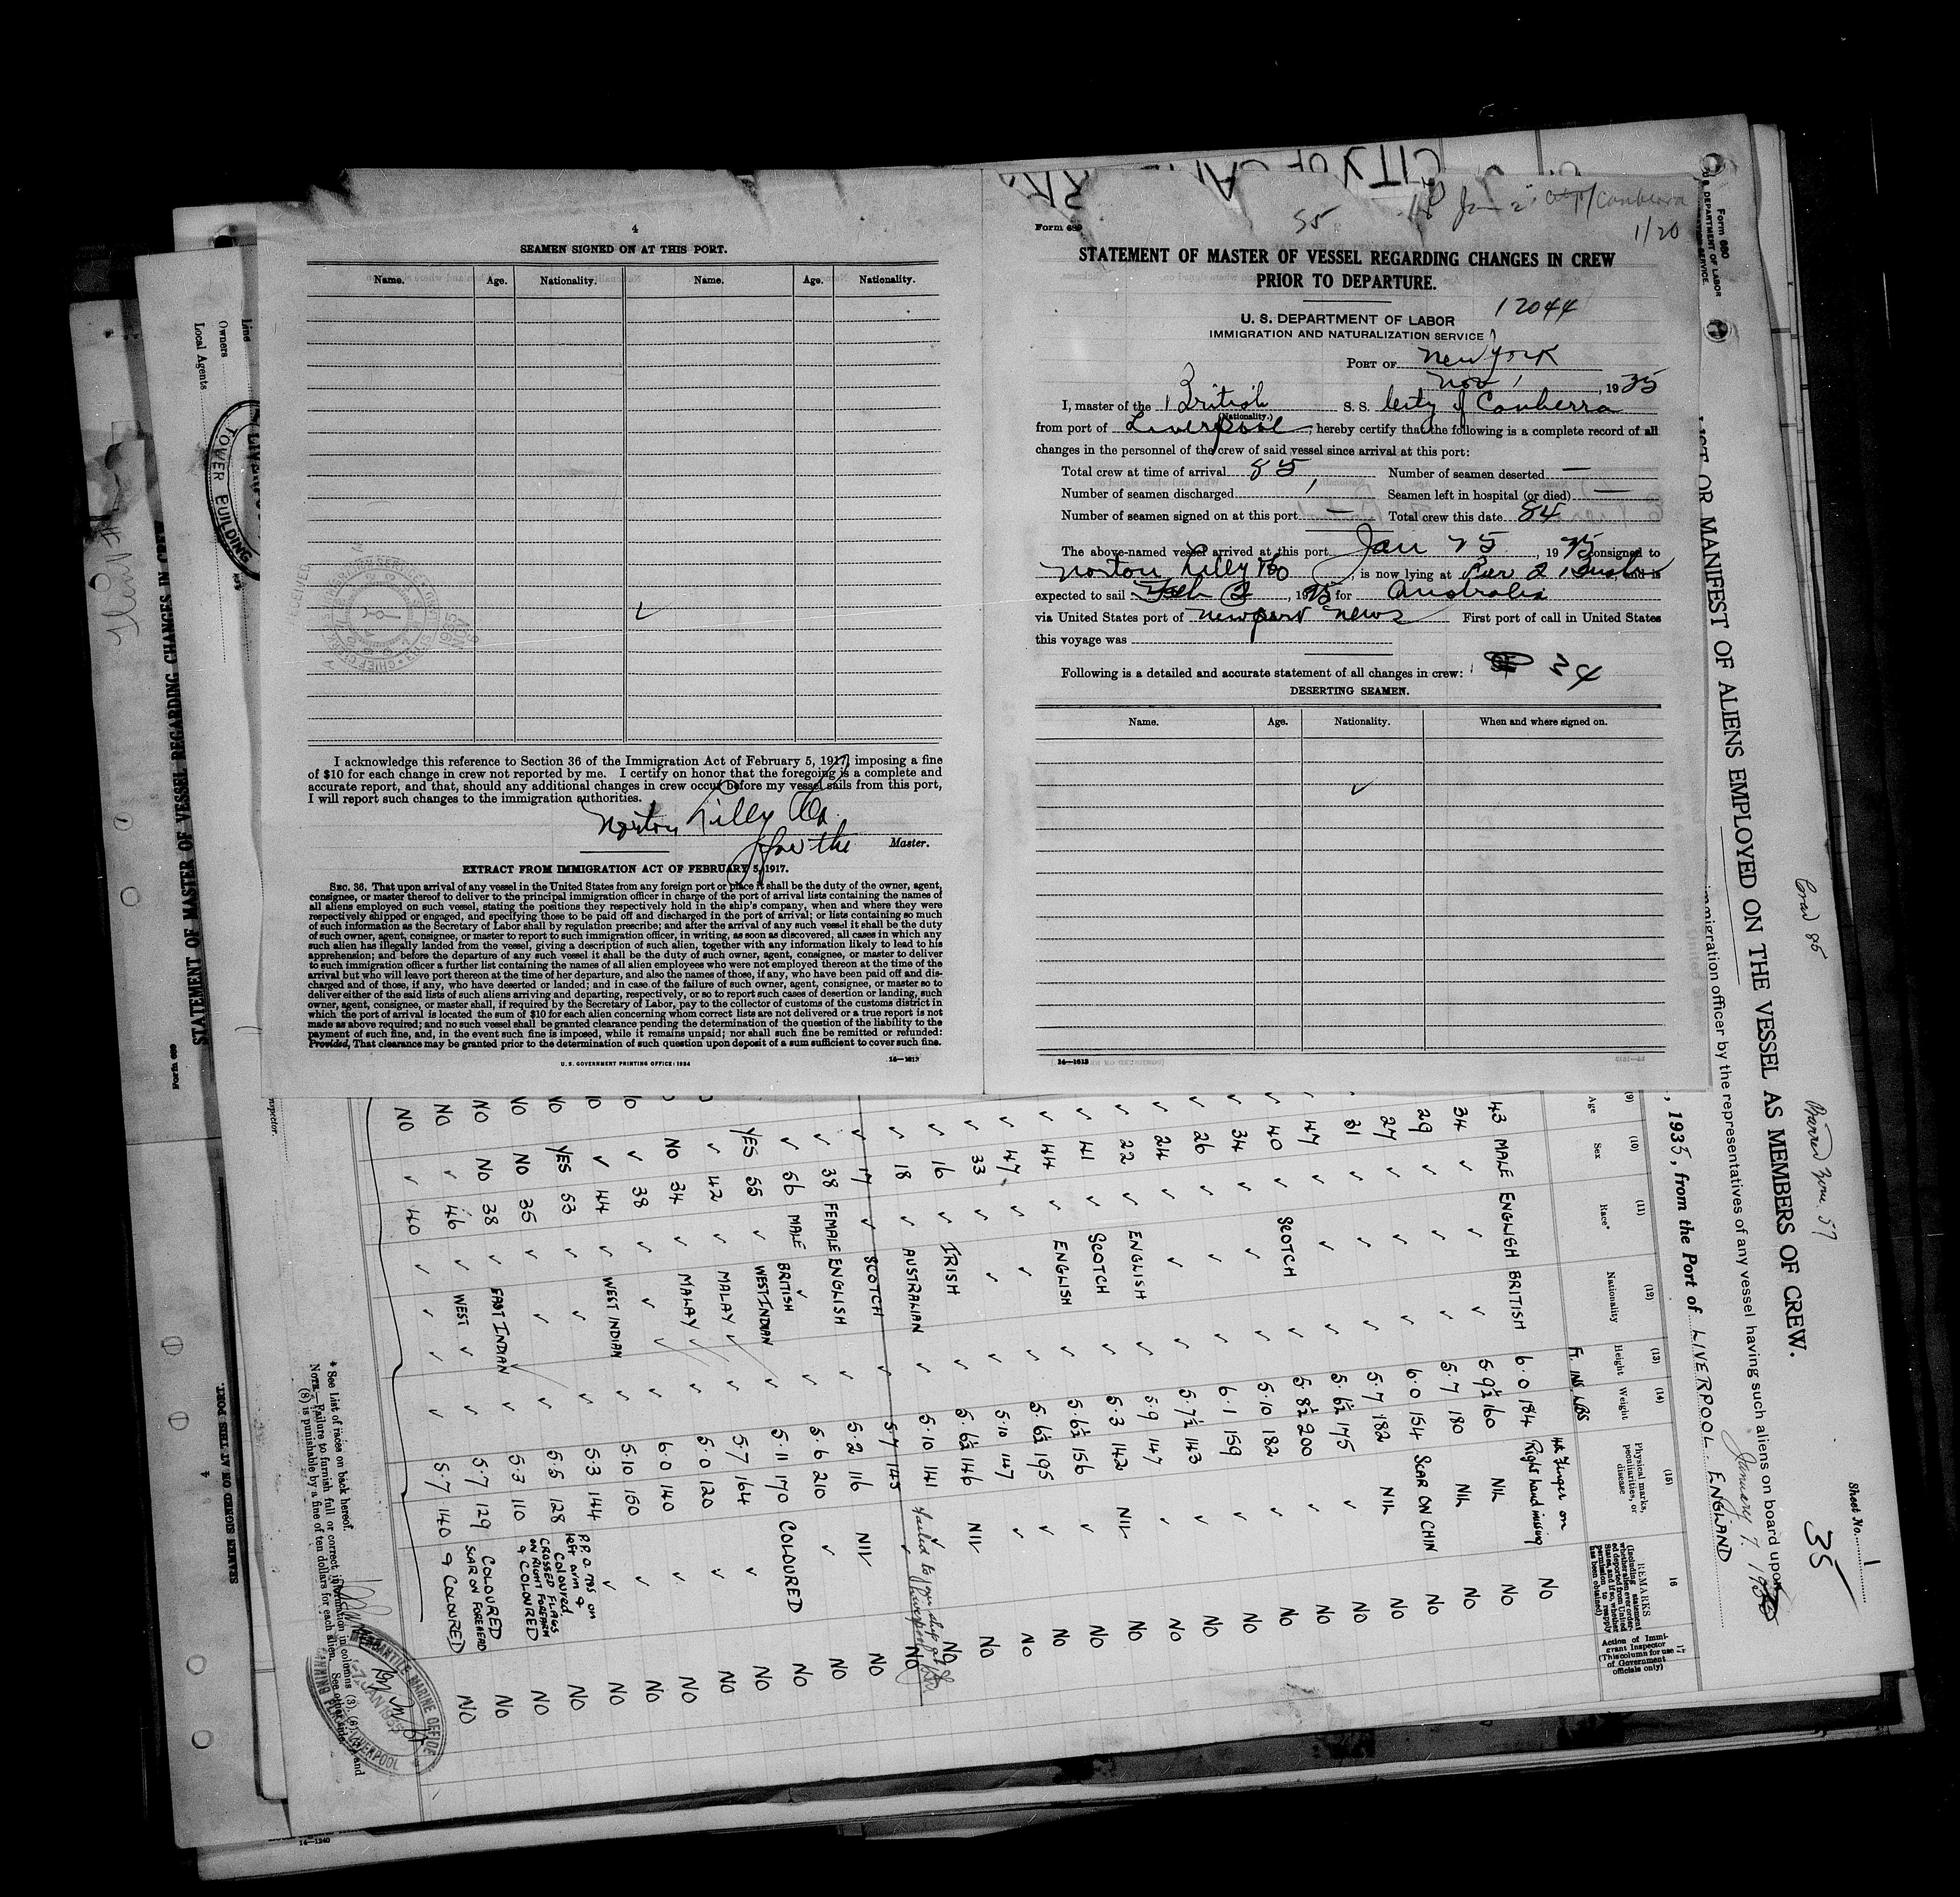 4
SEAMEN SIGNED ON AT THIS PORT.
Name. Age. Nationality. Name. Age. Nationality.
I acknowledge this reference to Section 36 of the Immigration Act of February 5, 1917, imposing a fine
of $10 for each change in crew not reported by me. I certify on honor that the foregoing is a complete and
accurate report, and that, should any additional changes in crew occur before my vessel sails from this port,
I will report such changes to the immigration authorities.
Norton Lilly Co
Master.
EXTRACT FROM IMMIGRATION ACT OF FEBRUARY 5, 1917.
SEC. 36. That upon arrival of any vessel in the United States from any foreign port or place it shall be the duty of the owner, agent,
consignee, or master thereof to deliver to the principal immigration officer in charge of the port of arrival lists containing the names of
all aliens employed on such vessel, stating the positions they respectively hold in the ship's company, when and where they were
respectively shipped or engaged, and specifying those to be paid off and discharged in the port of arrival; or lists containing so much
of such information as the Secretary of Labor shall by regulation prescribe; and after the arrival of any such vessel it shall be the duty
of such owner, agent, consignee, or master to report to such immigration officer, in writing, as soon as discovered, all cases in which any
such alien has illegally landed from the vessel, giving a description of such alien, together with any information likely to lead to his
apprehension; and before the departure of any such vessel it shall be the duty of such owner, agent, consignee, or master to deliver
to such immigration officer a further list containing the names of all alien employees who were not employed thereon at the time of the
arrival but who will leave port thereon at the time of her departure, and also the names of those, if any, who have been paid off and dis-
charged and of those, if any, who have deserted or landed; and in case of the failure of such owner, agent, consignee, or master so to
deliver either of the said lists of such aliens arriving and departing, respectively, or so to report such cases of desertion or landing, such
owner, agent, consignee, or master shall, if required by the Secretary of Labor, pay to the collector of customs of the customs district in
which the port of arrival is located the sum of $10 for each alien concerning whom correct lists are not delivered or a true report is not
made as above required; and no such vessel shall be granted clearance pending the determination of the question of the liability to the
payment of such fine, and, in the event such fine is imposed, while it remains unpaid; nor shall such fine be remitted or refunded:
Provided, That clearance may be granted prior to the determination of such question upon deposit of a sum sufficient to cover such fine.
U. S. GOVERNMENT PRINTING OFFICE: 1934
14—1613
CITY OF CANBERRA
City/Canberra
1/20
Form 689
STATEMENT OF MASTER OF VESSEL REGARDING CHANGES IN CREW
PRIOR TO DEPARTURE.
12044
U. S. DEPARTMENT OF LABOR
IMMIGRATION AND NATURALIZATION SERVICE
PORT OF New York
Nov 1, 1935
I, master of the British S. S. City of Canberra
(Nationality.)
from port of Liverpool, hereby certify that the following is a complete record of all
changes in the personnel of the crew of said vessel since arrival at this port:
Total crew at time of arrival 85 Number of seamen deserted —
Number of seamen discharged 1 Seamen left in hospital (or died) —
Number of seamen signed on at this port — Total crew this date 84
The above-named vessel arrived at this port Jan 25, 1935 consigned to
Norton Lilly Co, is now lying at Pier 2, Bush, and is
expected to sail Feb 2, 1935 for Australia
via United States port of Newport News First port of call in United States
this voyage was
Following is a detailed and accurate statement of all changes in crew: 34
DESERTING SEAMEN.
Name. Age. Nationality. When and where signed on.
14—1613
Form 680
U. S. DEPARTMENT OF LABOR
LIST OR MANIFEST OF ALIENS EMPLOYED ON THE VESSEL AS MEMBERS OF CREW.
immigration officer by the representatives of any vessel having such aliens on board upon
, 1935, from the Port of LIVERPOOL. ENGLAND January 7. 1935
Crew 85
Barred Zone. 57
Sheet No. 1
35
(9) (10) (11) (12) (13) (14) (15) 16 17
Age Sex Race* Nationality Height Weight Physical marks, peculiarities, or disease REMARKS
Action of Immigrant Inspector (This column for use of Government officials only)
FT. INS LBS
43 MALE ENGLISH BRITISH 6.0 184 4th Finger on Right hand missing NO
34 5.9½ 160 NIL NO
29 5.7 180 NIL NO
27 6.0 154 SCAR ON CHIN NO
31 5.7 182 NIL NO
47 5.6½ 175 NO
40 SCOTCH 5.8½ 200 NO
34 5.10 182 NO
26 6.1 159 NO
24 5.7½ 143 NO
22 ENGLISH 5.9 147 NO
41 SCOTCH 5.3 142 NIL NO
44 ENGLISH 5.6½ 156 NO
47 5.6½ 195 NO
33 5.10 147 NO
16 IRISH 5.6½ 146 NIL NO
18 AUSTRALIAN 5.10 141 NO
17 SCOTCH 5.7 145 Failed to join ship at Liverpool NO
38 FEMALE ENGLISH 5.2 116 NIL NO
56 MALE BRITISH 5.6 210 NO
YES 55 WEST INDIAN 5.11 170 COLOURED NO
42 MALAY 5.7 164 NO
NO 34 MALAY 5.0 120 NO
38 6.0 140 NO
44 WEST INDIAN 5.10 150 NO
YES 53 5.3 144 NO
NO 35 5.5 128 NO
NO 38 EAST INDIAN 5.3 110 NO
46 WEST 5.7 129 COLOURED SCAR ON FOREHEAD NO
40 5.7 140 & COLOURED NO
* See List of races on back hereof.
NOTE.—Failure to furnish full or correct information in columns (3), (6), and
(8) is punishable by a fine of ten dollars for each alien.
MERCANTILE MARINE OFFICE
CANNING PLACE LIVERPOOL
-7 JAN 1935
14—1240
Line
Owners
Local Agents
TOWER BUILDING
Form 689
STATEMENT OF MASTER OF VESSEL REGARDING CHANGES IN CREW
4
SEAMEN SIGNED ON AT THIS PORT.